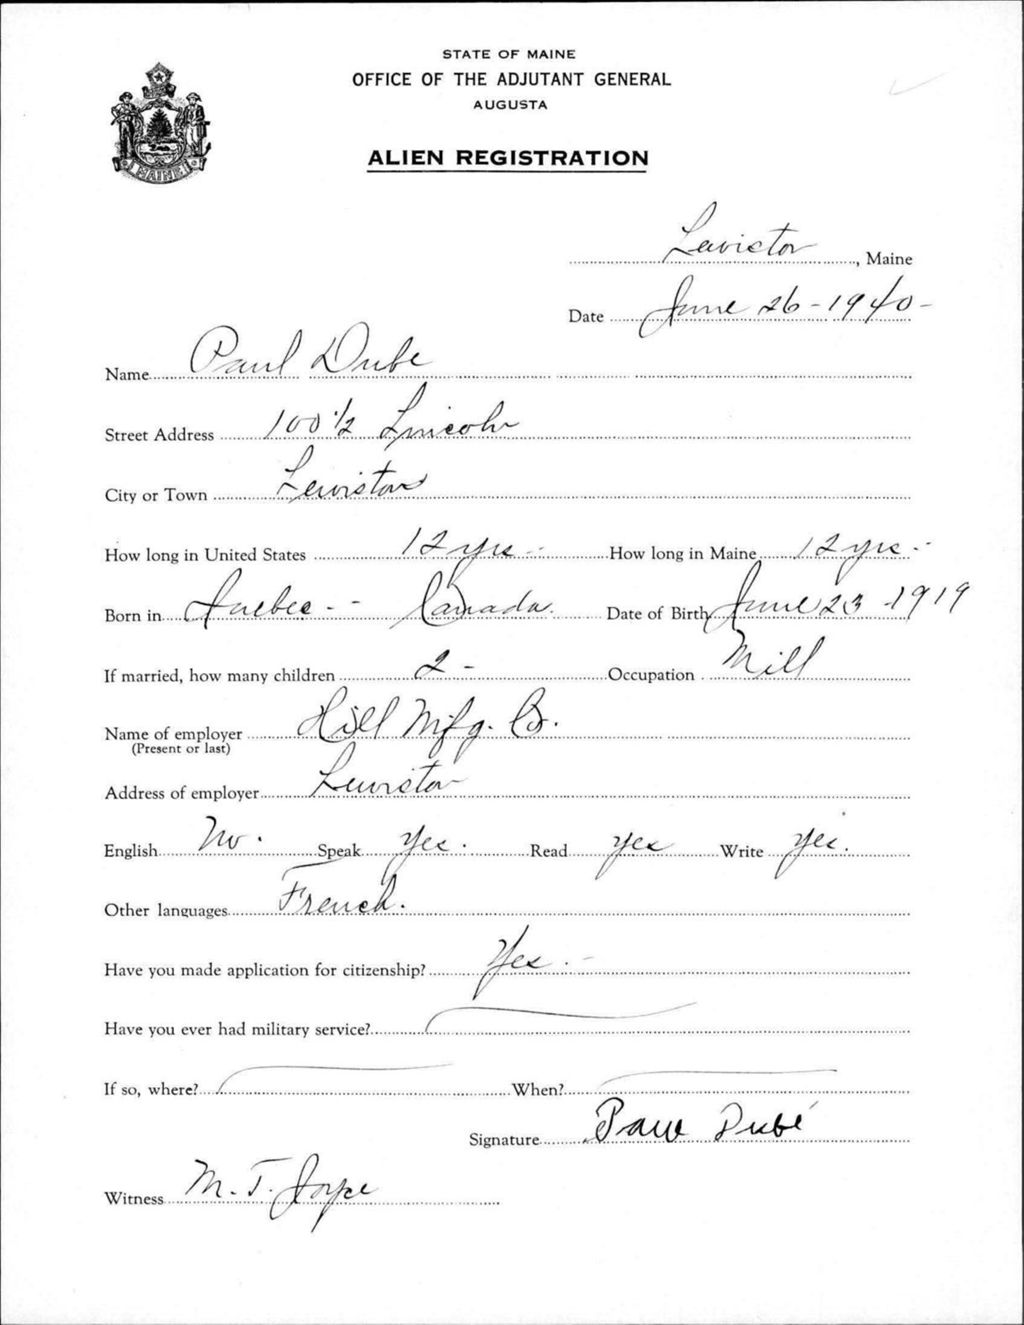 STATE OF MAINE
OFFICE OF THE ADJUTANT GENERAL
AUGUSTA
ALIEN REGISTRATION
MAINE
Lewiston, Maine
Date June 26-1940-
Name Paul Dube
Street Address 100 1/2 Lincoln
City or Town Lewiston
How long in United States 12 yrs - How long in Maine 12 yrs.-
Born in Quebec - - Canada. Date of Birth June 23 -1919
If married, how many children 2 - Occupation Mill
Name of employer Hill Mfg. Co.
(Present or last)
Address of employer Lewiston
English No. Speak Yes. Read Yes Write Yes.
Other languages French.
Have you made application for citizenship? Yes. -
Have you ever had military service?
If so, where? When?
Signature Paul Dubé
Witness M. T. Joyce